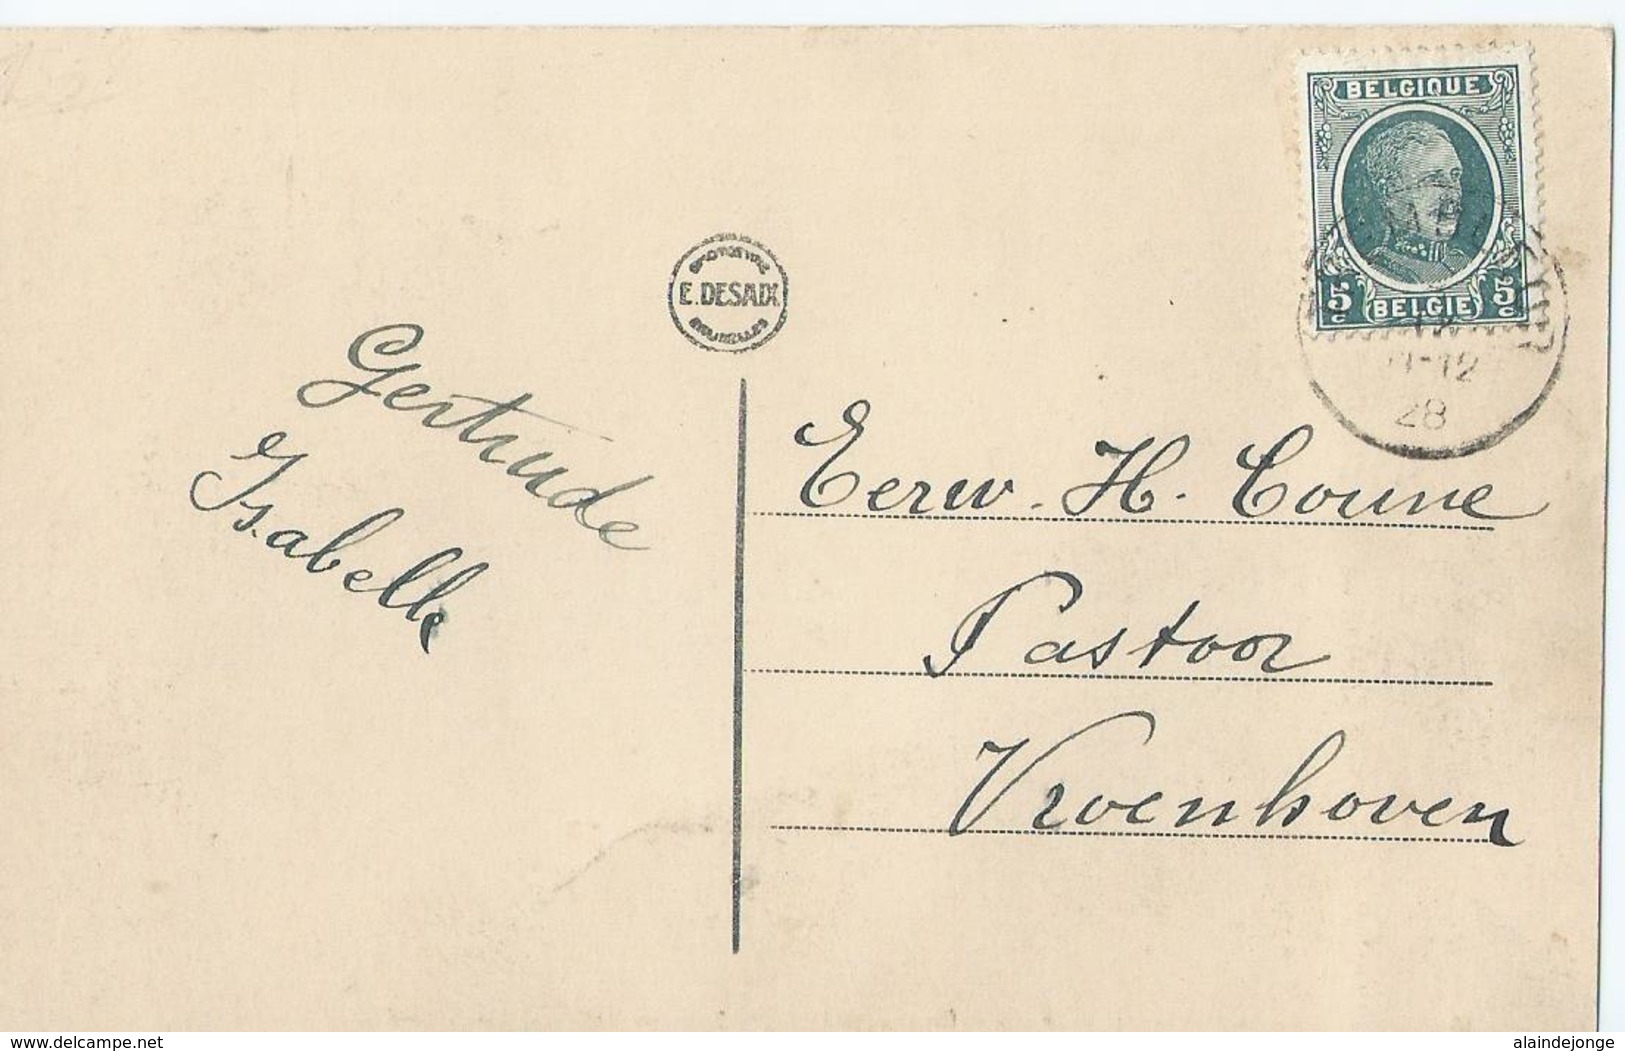 BELGIQUE
5c BELGIE 5c
11-12
28
E. DESAIX
BRUXELLES
Gertrude
Isabelle
Eerw. H. Coune
Pastoor
Vroenhoven
delcampe.net
alaindejonge